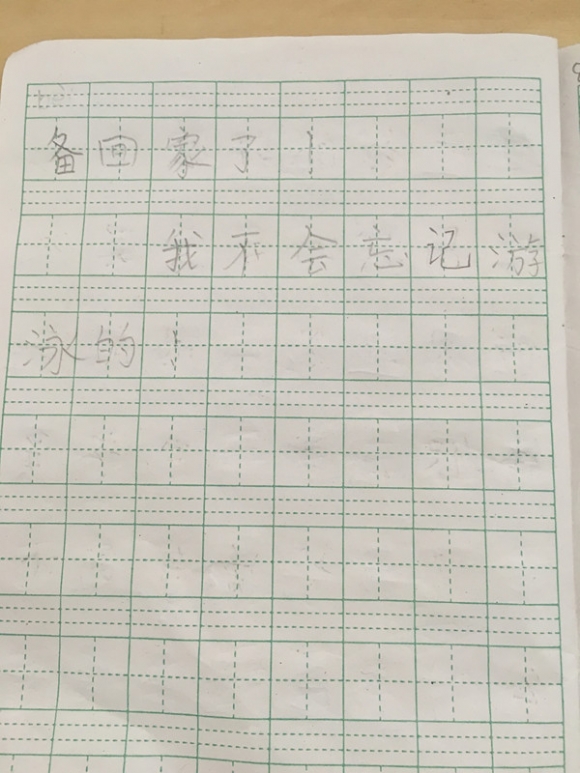 备回家了！
我不会忘记游
泳的！